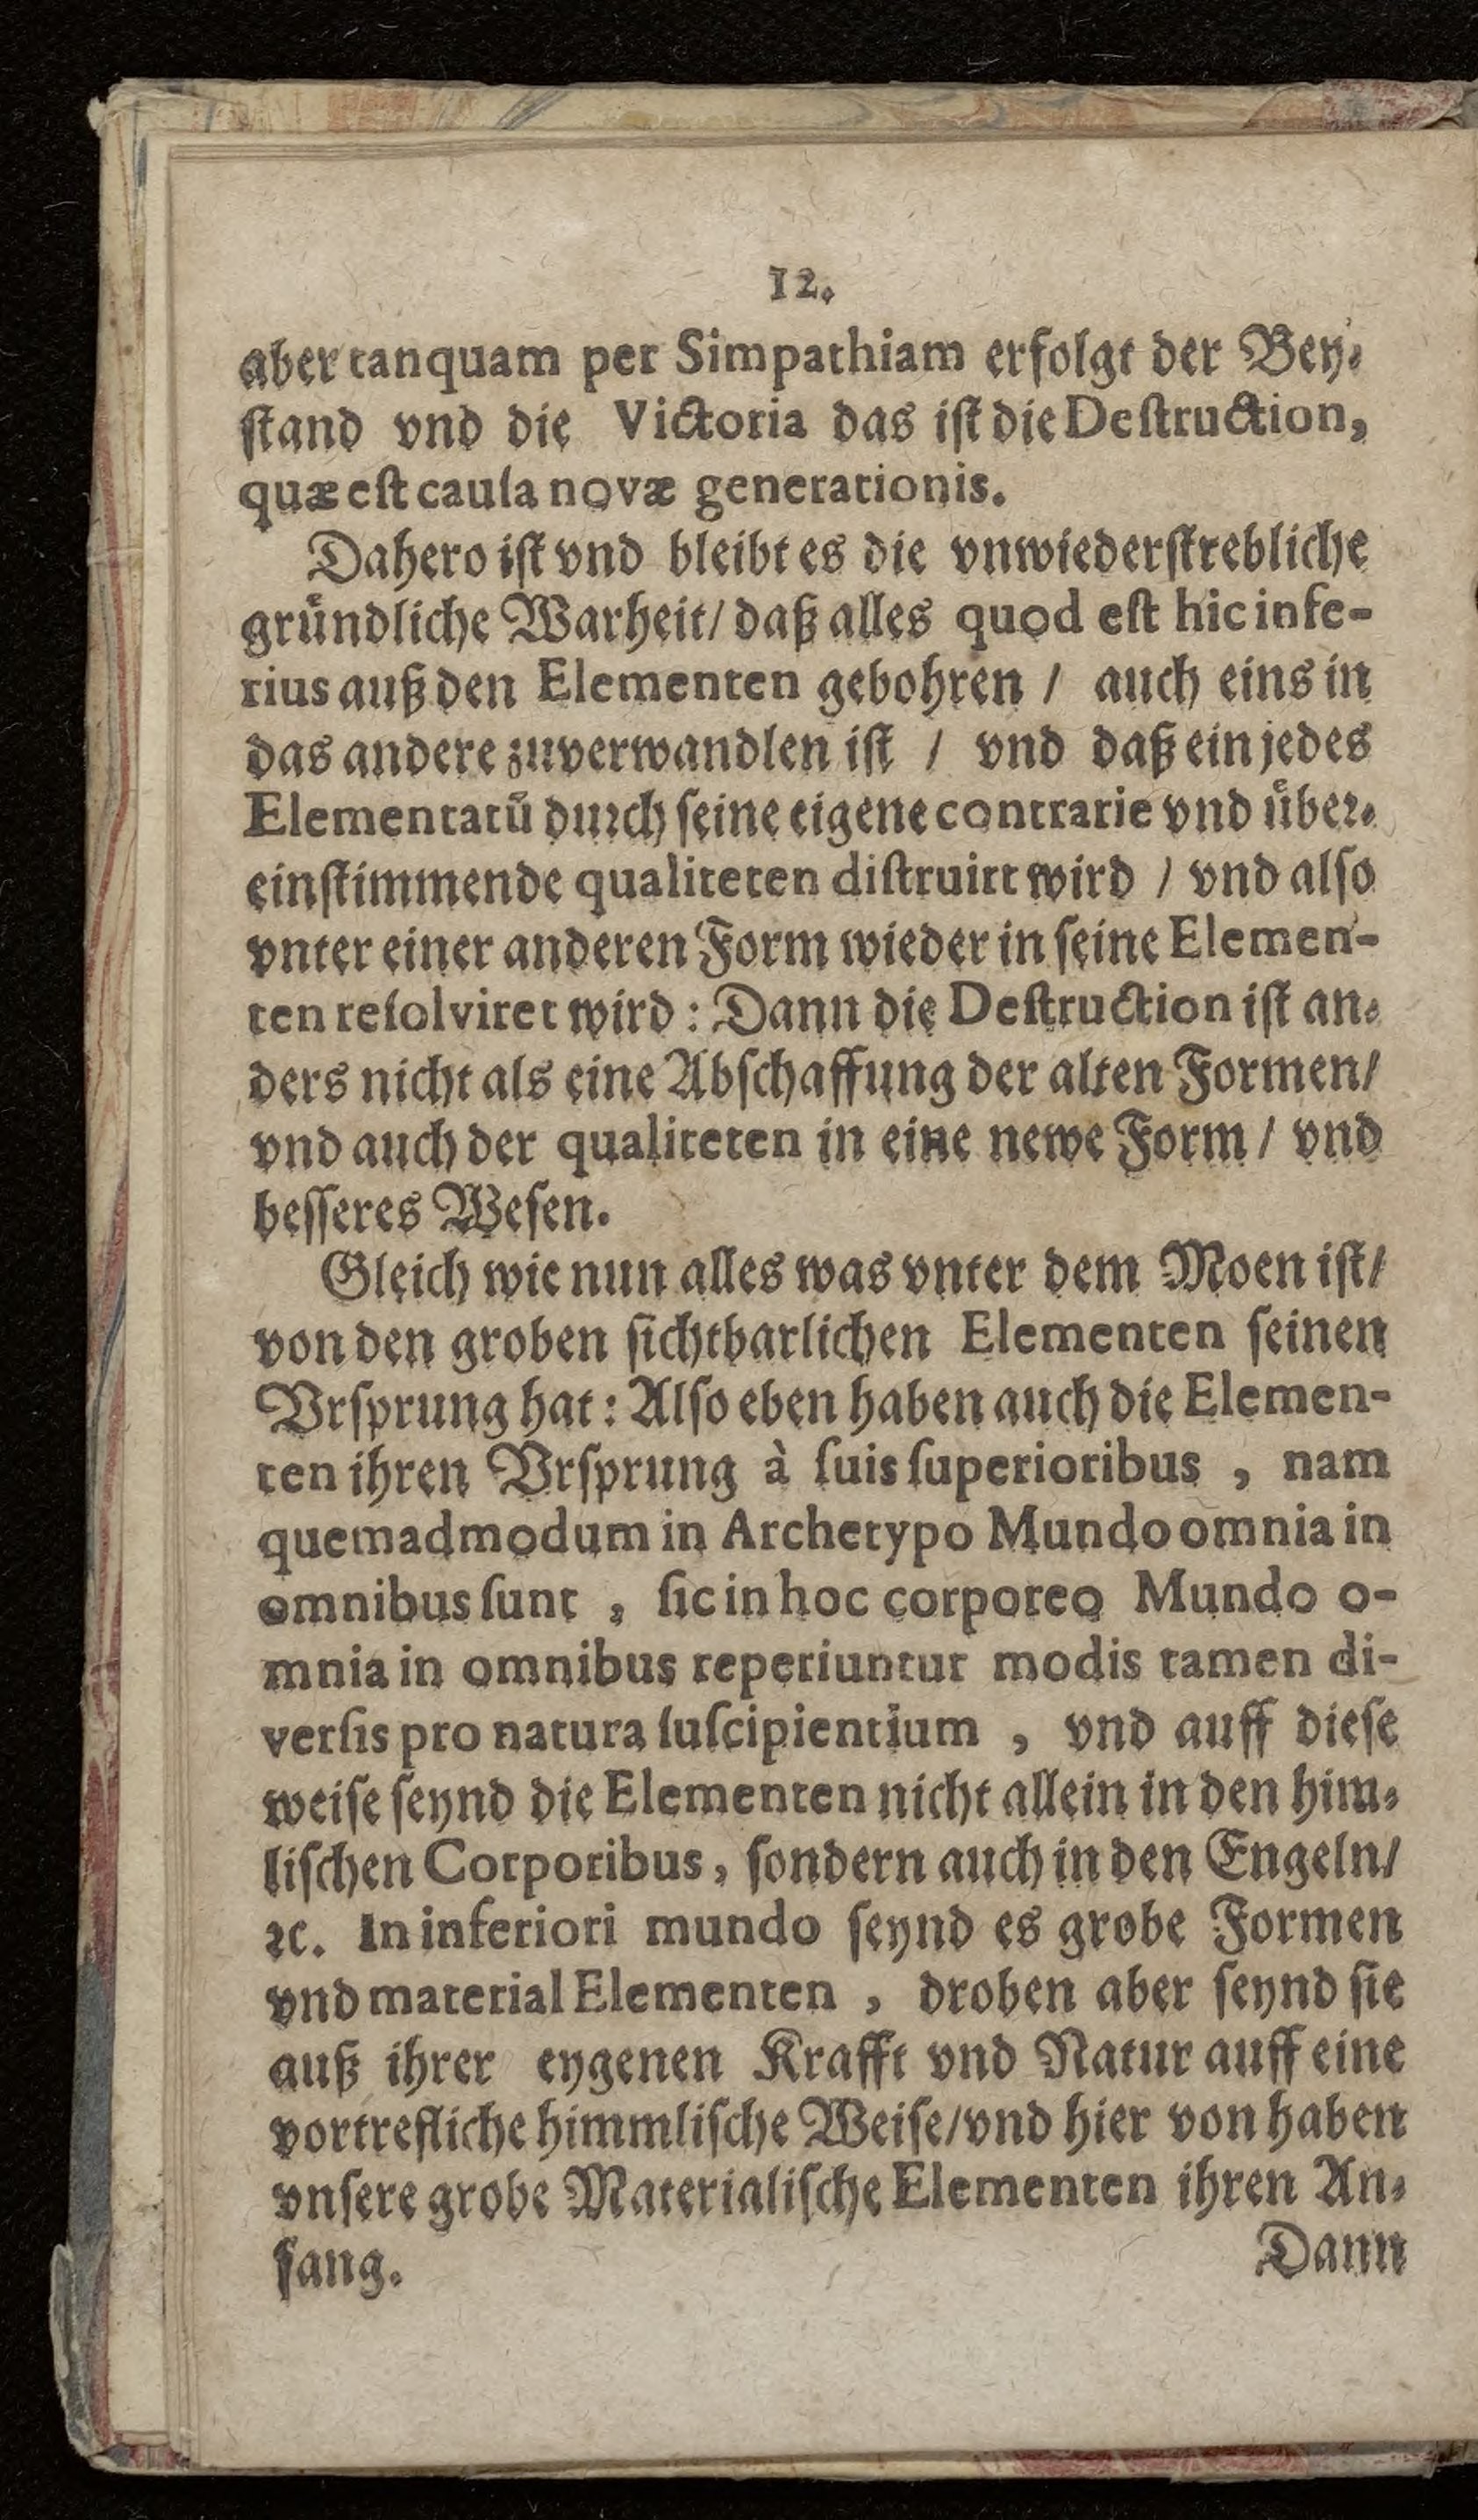 12.
aber tanquam per Simpathiam erfolgt der Bey⸗
ſtand vnd die Victoria das iſt die Deſtruction,
quæ eſt cauſa novæ generationis.
Dahero iſt vnd bleibt es die vnwiederſtrebliche
gruͤndliche Warheit/ daß alles quod eſt hic infe-
rius auß den Elementen gebohren / auch eins in
das andere zuverwandlen iſt / vnd daß ein jedes
Elementatū durch ſeine eigene contrarie vnd uͤber⸗
einſtimmende qualiteten diſtruirt wird / vnd alſo
vnter einer anderen Form wieder in ſeine Elemen-
ten reſolviret wird : Dann die Deſtruction iſt an⸗
ders nicht als eine Abſchaffung der alten Formen/
vnd auch der qualiteten in eine newe Form / vnd
beſſeres Weſen.
Gleich wie nun alles was vnter dem Moen iſt/
von den groben ſichtbarlichen Elementen ſeinen
Vrſprung hat : Alſo eben haben auch die Elemen-
ten ihren Vrſprung à ſuis ſuperioribus , nam
quemadmodum in Archetypo Mundo omnia in
omnibus ſunt , ſic in hoc corporeo Mundo o-
mnia in omnibus reperiuntur modis tamen di-
verſis pro natura ſuſcipientium , vnd auff dieſe
weiſe ſeynd die Elementen nicht allein in den him⸗
liſchen Corporibus, ſondern auch in den Engeln/
ꝛc. In inferiori mundo ſeynd es grobe Formen
vnd material Elementen , droben aber ſeynd ſie
auß ihrer eygenen Krafft vnd Natur auff eine
vortrefliche himmliſche Weiſe/vnd hier von haben
vnſere grobe Materialiſche Elementen ihren An⸗
fang.
Dann